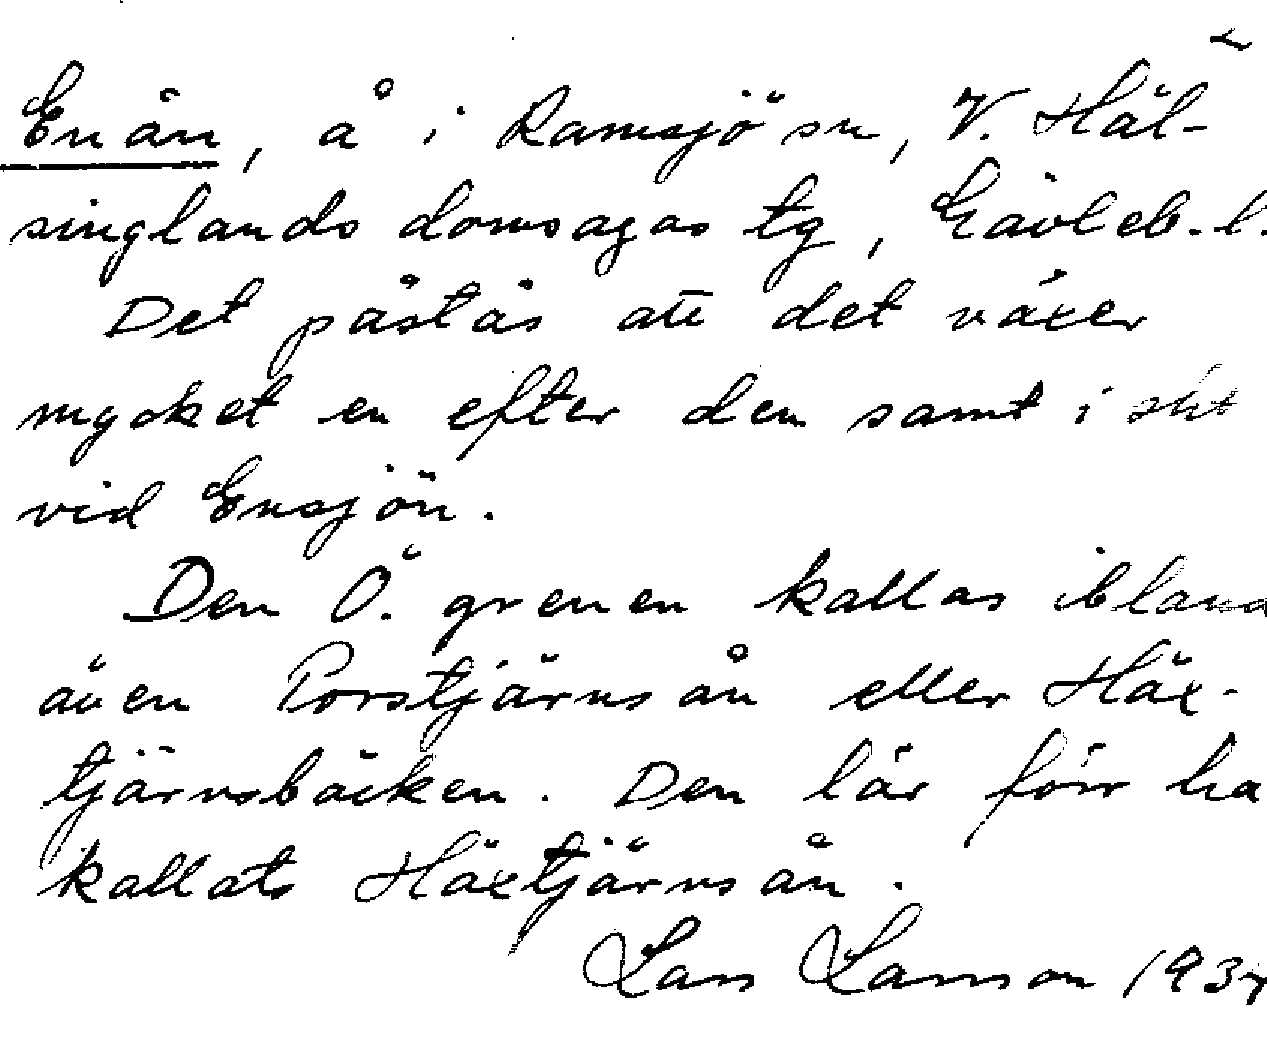 Enån, å i Ramsjö sn, V. Häl-
singlands domsagas tg, Gävleb. l.
Det påstås att det växer
mycket en efter den samt i sht
vid Ensjön.
Den Ö. grenen kallas ibland
även Porstjärnsån eller Häx-
tjärnsbäcken. Den lär förr ha
kallats Häxtjärnsån.
Lars Larsson